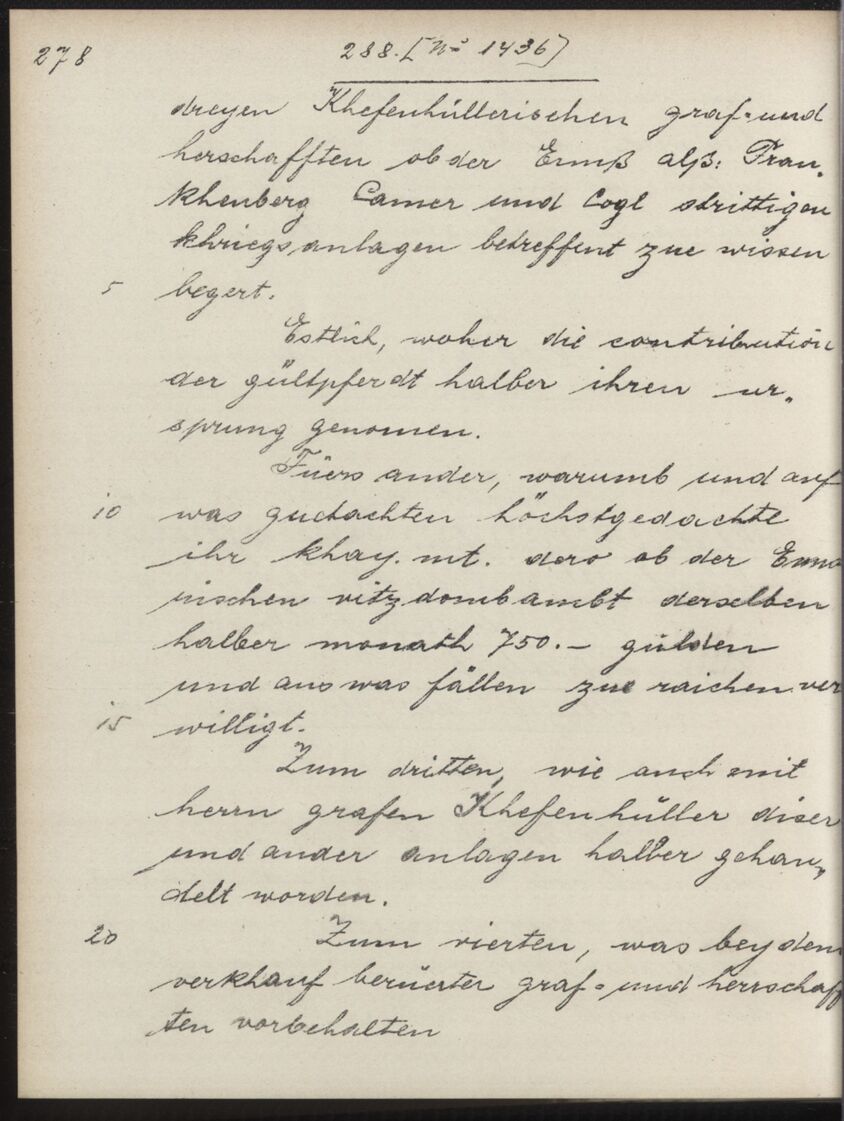 278 288. [No 1436]
dreyen Khefenhüllerischen graf- und
herschafften ob der Ennß alß: Fran-
khenberg Camer und Cogl strittigen
khriegsanlagen betreffent zue wissen
5 begert.
Estlich, woher die contribution
der gültpferdt halber ihren ur-
sprung genomen.
Fürs ander, warumb und auf
10 was gudachten höchstgedachte
ihr khay. mt. dero ob der Enns
ischen vitzdombambt derselben
halber monath 750.- gulden
und aus was fällen zue raichen ver
15 willigt.
Zum dritten, wie auch mit
herrn grafen Khefenhüller diser
und ander anlagen halber gehan-
delt worden.
20 Zum vierten, was bey dem
verkhauf berüerter graf- und herrschaff
ten vorbehalten